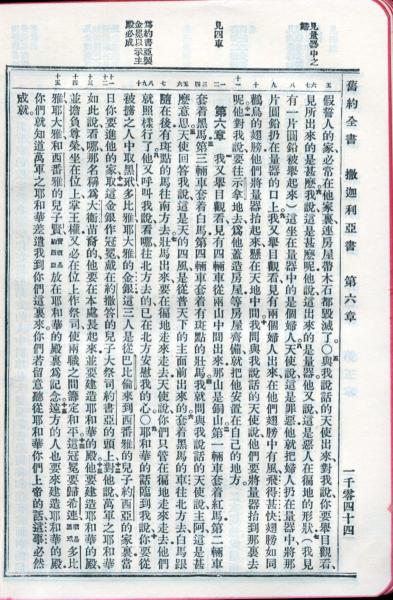 舊約全書 撒迦利亞書 第六章 一千零四十四
見量器中之婦
見四車
爲約書亞製金冕以示主殿必成
假誓人的家必常在他家裏連房屋帶木石都毀滅了○與我說話的天使出來對我說你要舉目觀看
見所出來的是甚麼我說這是甚麼呢他說這出來的是量器他又說這是惡人在徧地的形狀（我見
有一片圓鉛被舉起來）這坐在量器中的是個婦人天使說這是罪惡他就把婦人扔在量器中將那
片圓鉛扔在量器的口上我又舉目觀看見有兩個婦人出來在他們翅膀中有風飛得甚快翅膀如同
鸛鳥的翅膀他們將量器抬起來懸在天地中間我問與我說話的天使說他們要將量器抬到那裏去
呢他對我說要往示拿地去爲他蓋造房屋等房屋齊備就把他安置在自己的地方
第六章 我又舉目觀看見有四輛車從兩山中間出來那山是銅山第一輛車套着紅馬第二輛車
套着黑馬第三輛車套着白馬第四輛車套着有斑點的壯馬我就問與我說話的天使說主阿這是甚
麼意思天使回答我說這是天的四風是從普天下的主面前出來的套着黑馬的車往北方去白馬跟
隨在後有斑點的馬往南方去壯馬出來要在徧地走來走去天使說你們只管在徧地走來走去他們
就照樣行了他又呼叫我說看哪往北方去的已在北方安慰我的心○耶和華的話臨到我說你要從
被擄之人中取黑玳多比雅耶大雅的金銀這三人是從巴比倫來到西番雅的兒子約西亞的家裏當
日你要進他的家取這金銀作冠冕戴在約撒答的兒子大祭司約書亞的頭上對他說萬軍之耶和華
如此說看哪那名稱爲大衛苗裔的他要在本處長起來並要建造耶和華的殿他要建造耶和華的殿
並擔負尊榮坐在位上掌王權又必在位上作祭司使兩職之間籌定和平這冠冕要歸希連多比
雅耶大雅和西番雅的兒子賢放在耶和華的殿裏爲記念遠方的人也要來建造耶和華的殿
你們就知道萬軍之耶和華差遣我到你們這裏來你們若留意聽從耶和華你們上帝的話這事必然
成就